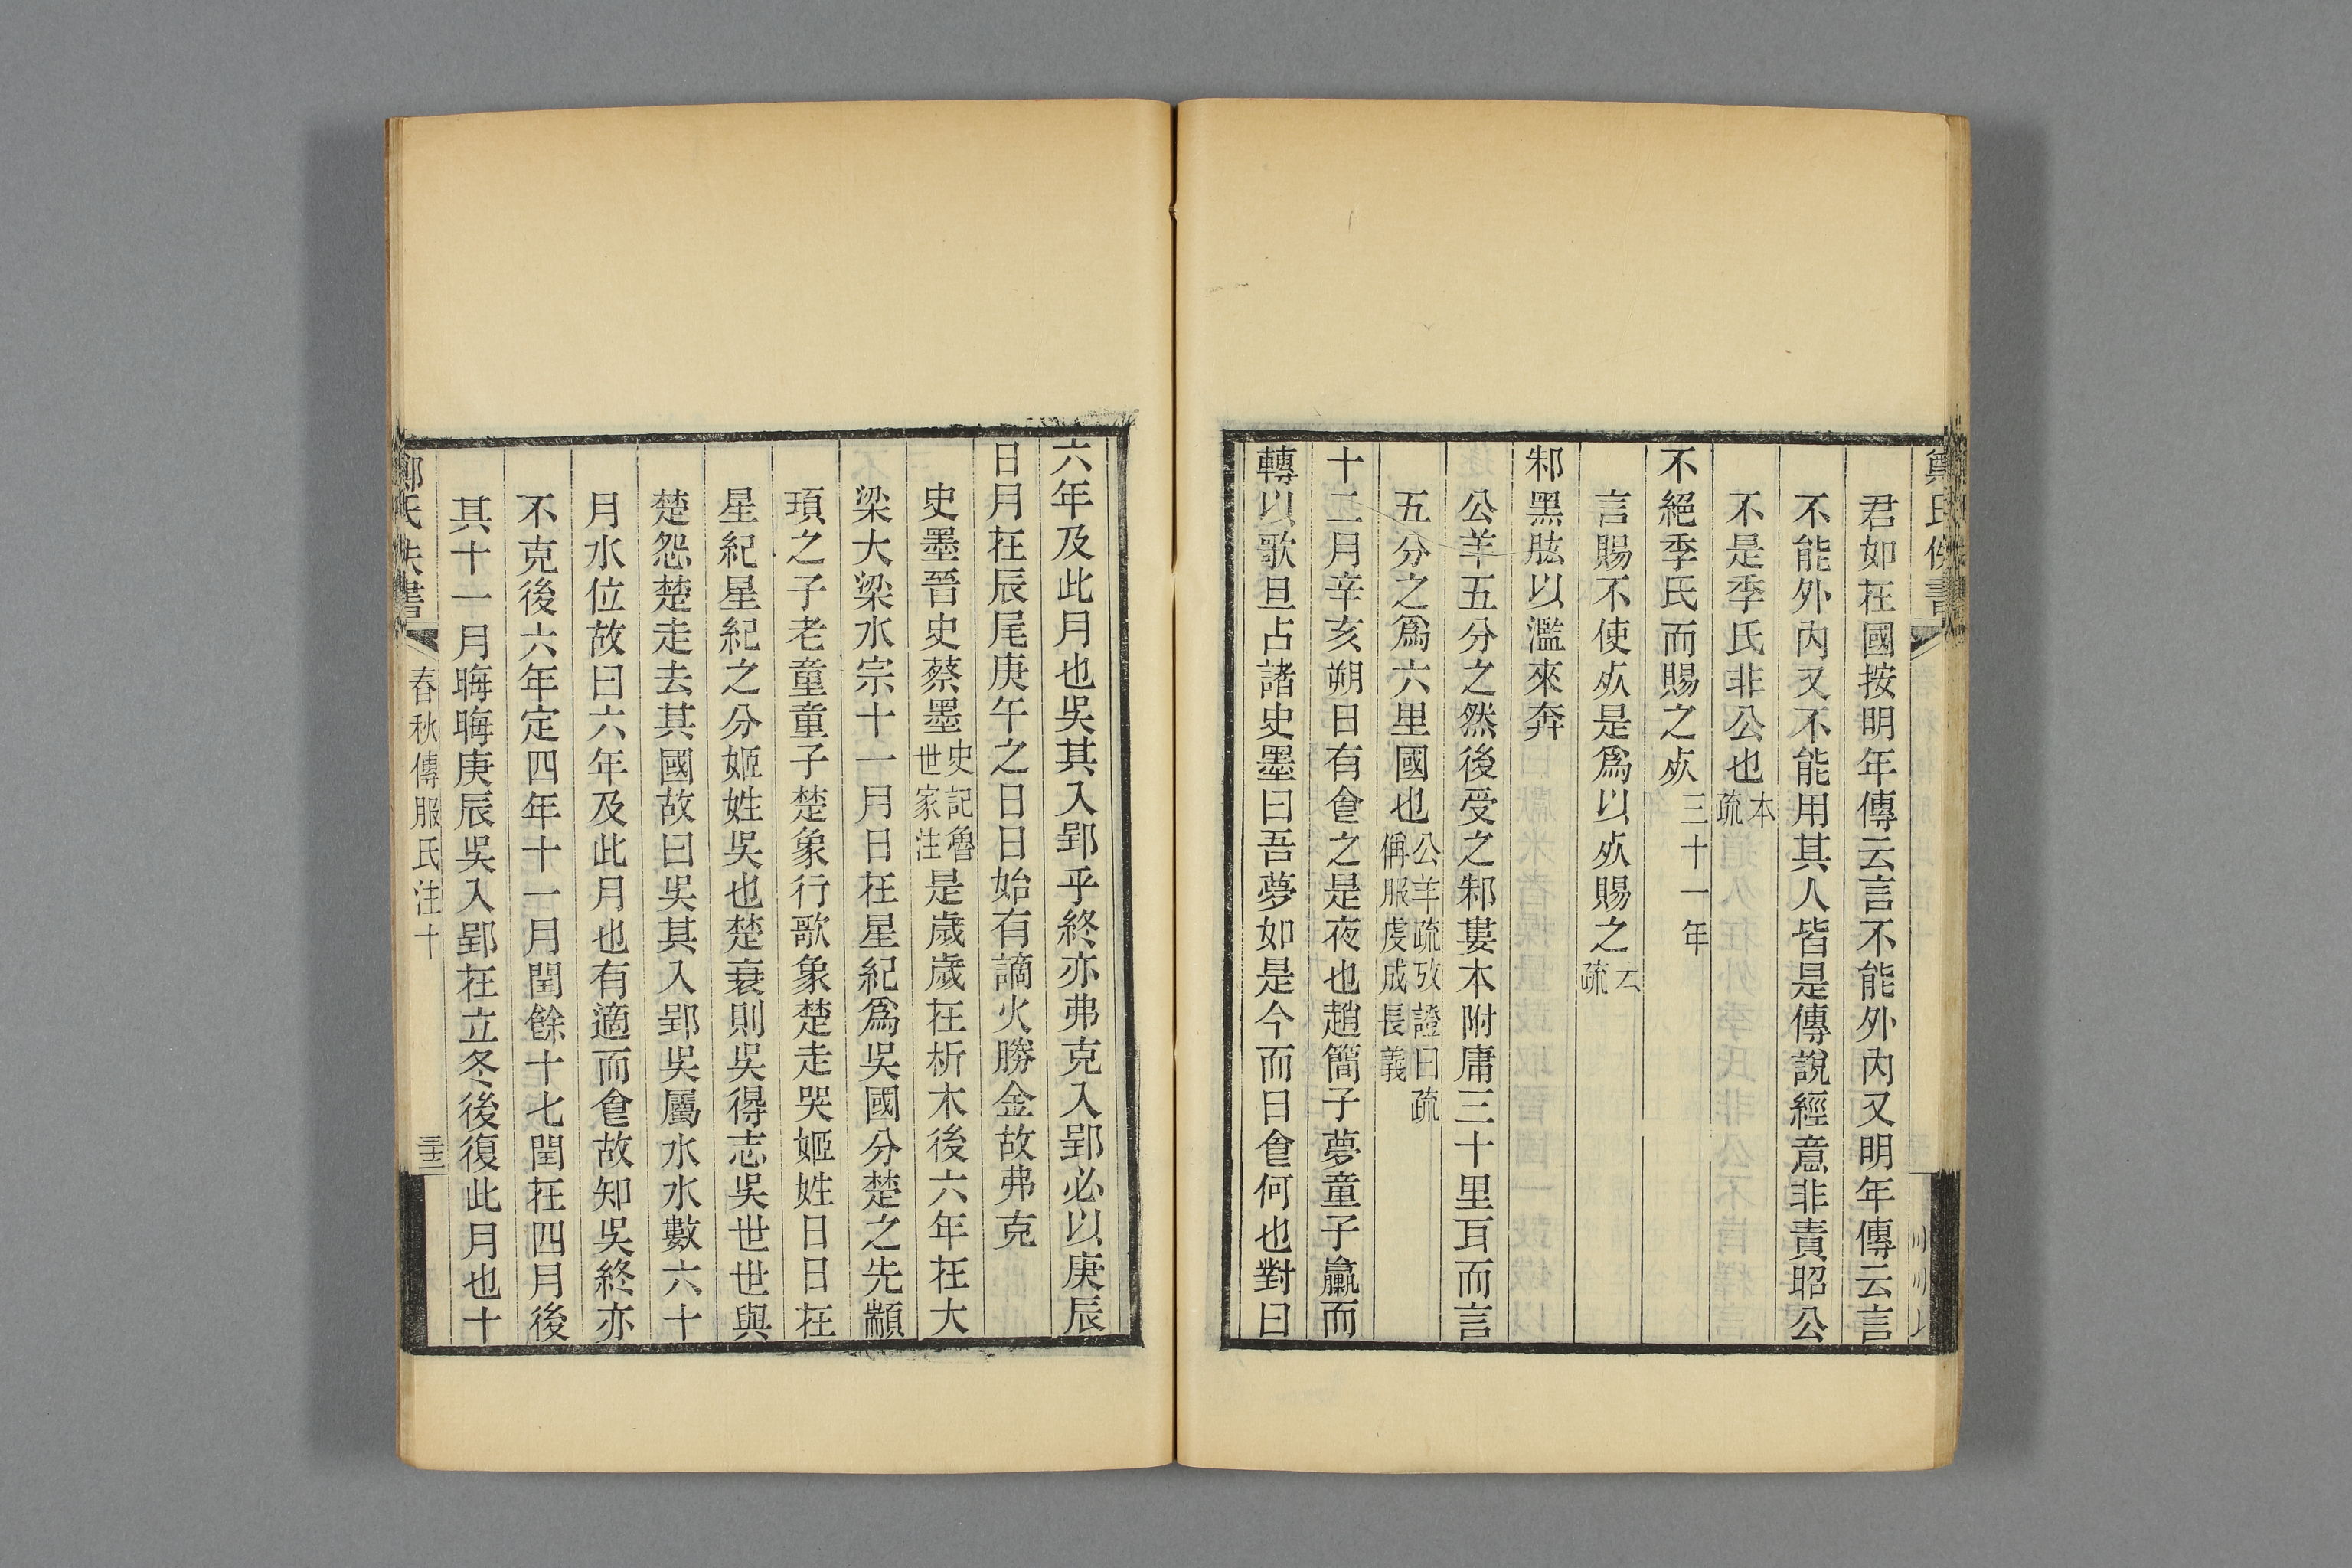 君如在國按明年傳云言不能外內又明年傳云言
不能外內又不能用其人皆是傳說經意非責昭公
不是季氏非公也本疏
不絕季氏而賜之死三十一年
言賜不使死是爲以死賜之疏云
邾黑肱以濫來奔
公羊五分之然後受之邾婁本附庸三十里耳而言
五分之爲六里國也公羊疏攷證曰疏偁服虔成長義
十二月辛亥朔日有㑹之是夜也趙簡子夢童子臝而
轉以歌旦占諸史墨曰吾夢如是今而日㑹何也對曰
六年及此月也吳其入郢乎終亦弗克入郢必以庚辰
日月在辰尾庚午之日日始有謫火勝金故弗克
史墨晉史蔡墨史記魯世家注是歲歲在析木後六年在大
梁大梁水宗十一月日在星紀爲吳國分楚之先顓
頊之子老童童子楚象行歌象楚走哭姬姓日日在
星紀星紀之分姬姓吳也楚衰則吳得志吳世世與
楚怨楚走去其國故曰吳其入郢吳屬水水數六十
月水位故曰六年及此月也有適而㑹故知吳終亦
不克後六年定四年十一月閏餘十七閏在四月後
其十一月晦晦庚辰吳入郢在立冬後復此月也十
春秋傳服氏注十